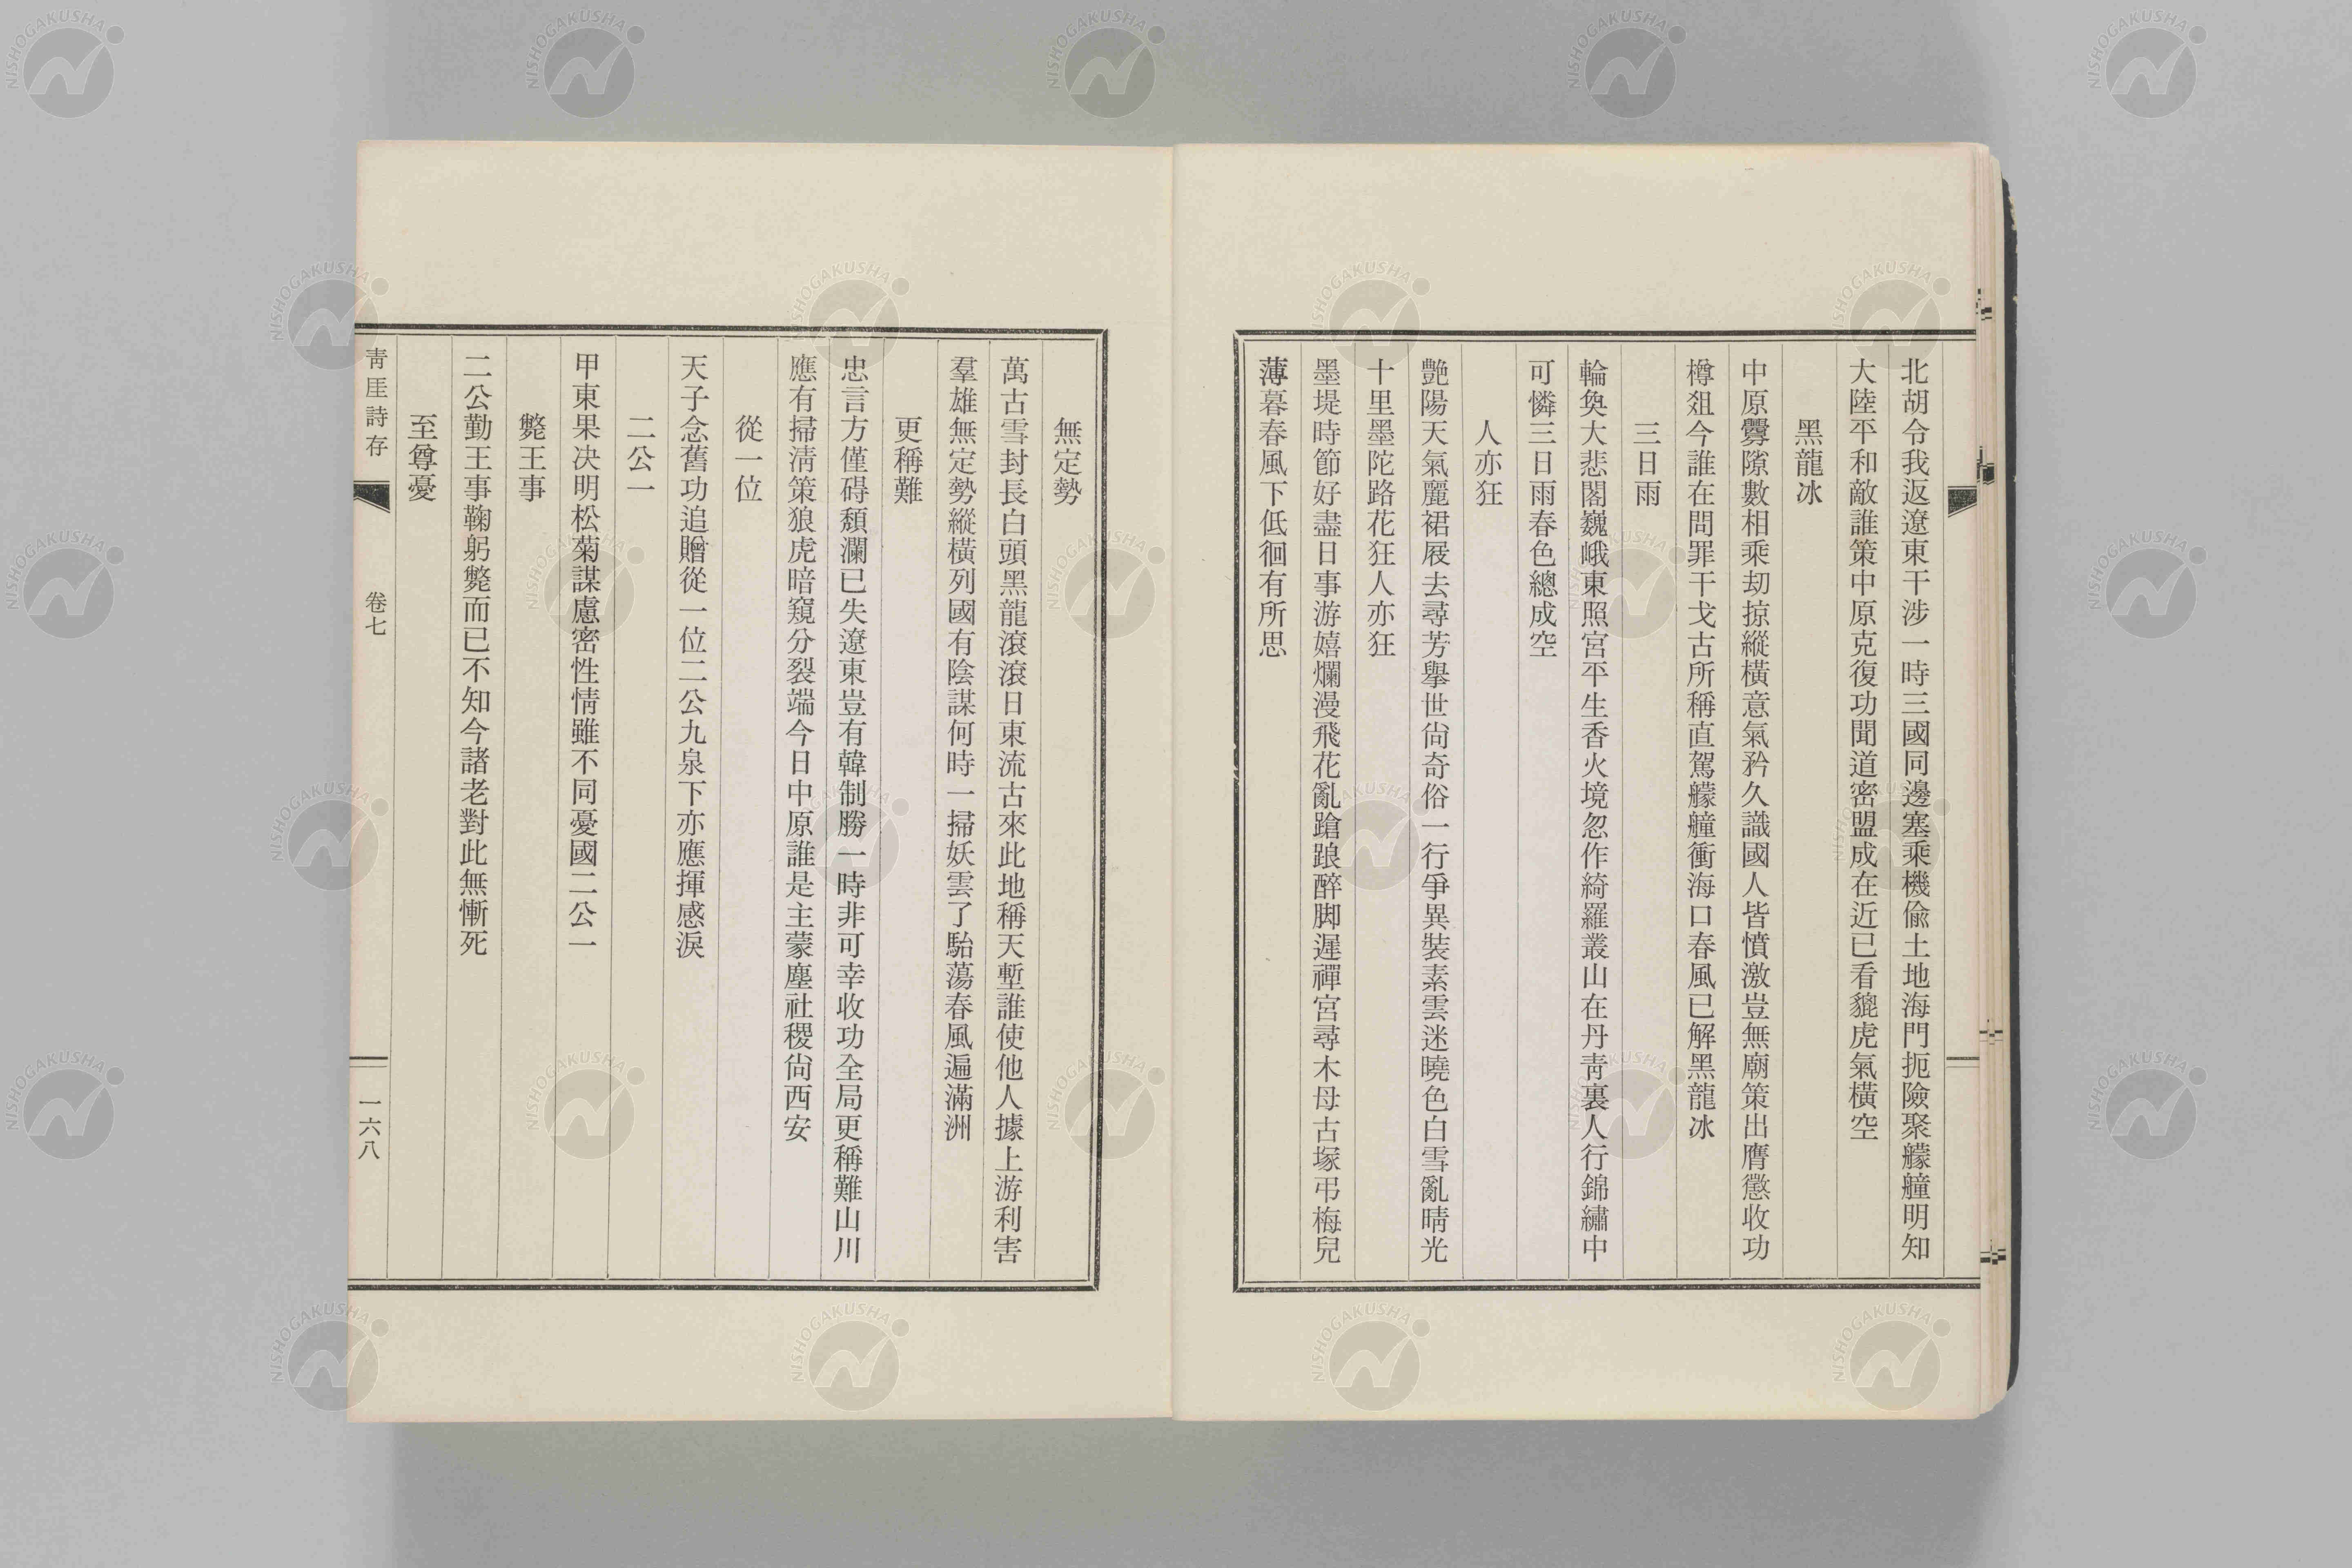 北胡令我返遼東干涉一時三國同邊塞乘機偸土地海門扼險聚艨艟明知
大陸平和敵誰策中原克復功聞道密盟成在近已看貔虎氣橫空
黑龍冰
中原釁隙數相乘刧掠縱橫意氣矜久識國人皆憤激豈無廟策出膺懲收功
樽俎今誰在問罪干戈古所稱直駕艨艟衝海口春風已解黑龍冰
三日雨
輪奐大悲閣巍峨東照宮平生香火境忽作綺羅叢山在丹靑裏人行錦繡中
可憐三日雨春色總成空
人亦狂
艶陽天氣麗裙屐去尋芳擧世尙奇俗一行爭異裝素雲迷曉色白雪亂晴光
十里墨陀路花狂人亦狂
墨堤時節好盡日事游嬉爛漫飛花亂蹌踉醉脚遲禪宮尋木母古塚弔梅兒
薄暮春風下低徊有所思
無定勢
萬古雪封長白頭黑龍滾滾日東流古來此地稱天塹誰使他人據上游利害
羣雄無定勢縱橫列國有陰謀何時一掃妖雲了駘蕩春風遍滿洲
更稱難
忠言方僅碍頹瀾已失遼東豈有韓制勝一時非可幸收功全局更稱難山川
應有掃淸策狼虎暗窺分裂端今日中原誰是主蒙塵社稷尙西安
從一位
天子念舊功追贈從一位二公九泉下亦應揮感淚
二公一
甲東果決明松菊謀慮密性情雖不同憂國二公一
斃王事
二公勤王事鞠躬斃而已不知今諸老對此無慚死
至尊憂
靑厓詩存
卷七
一六八